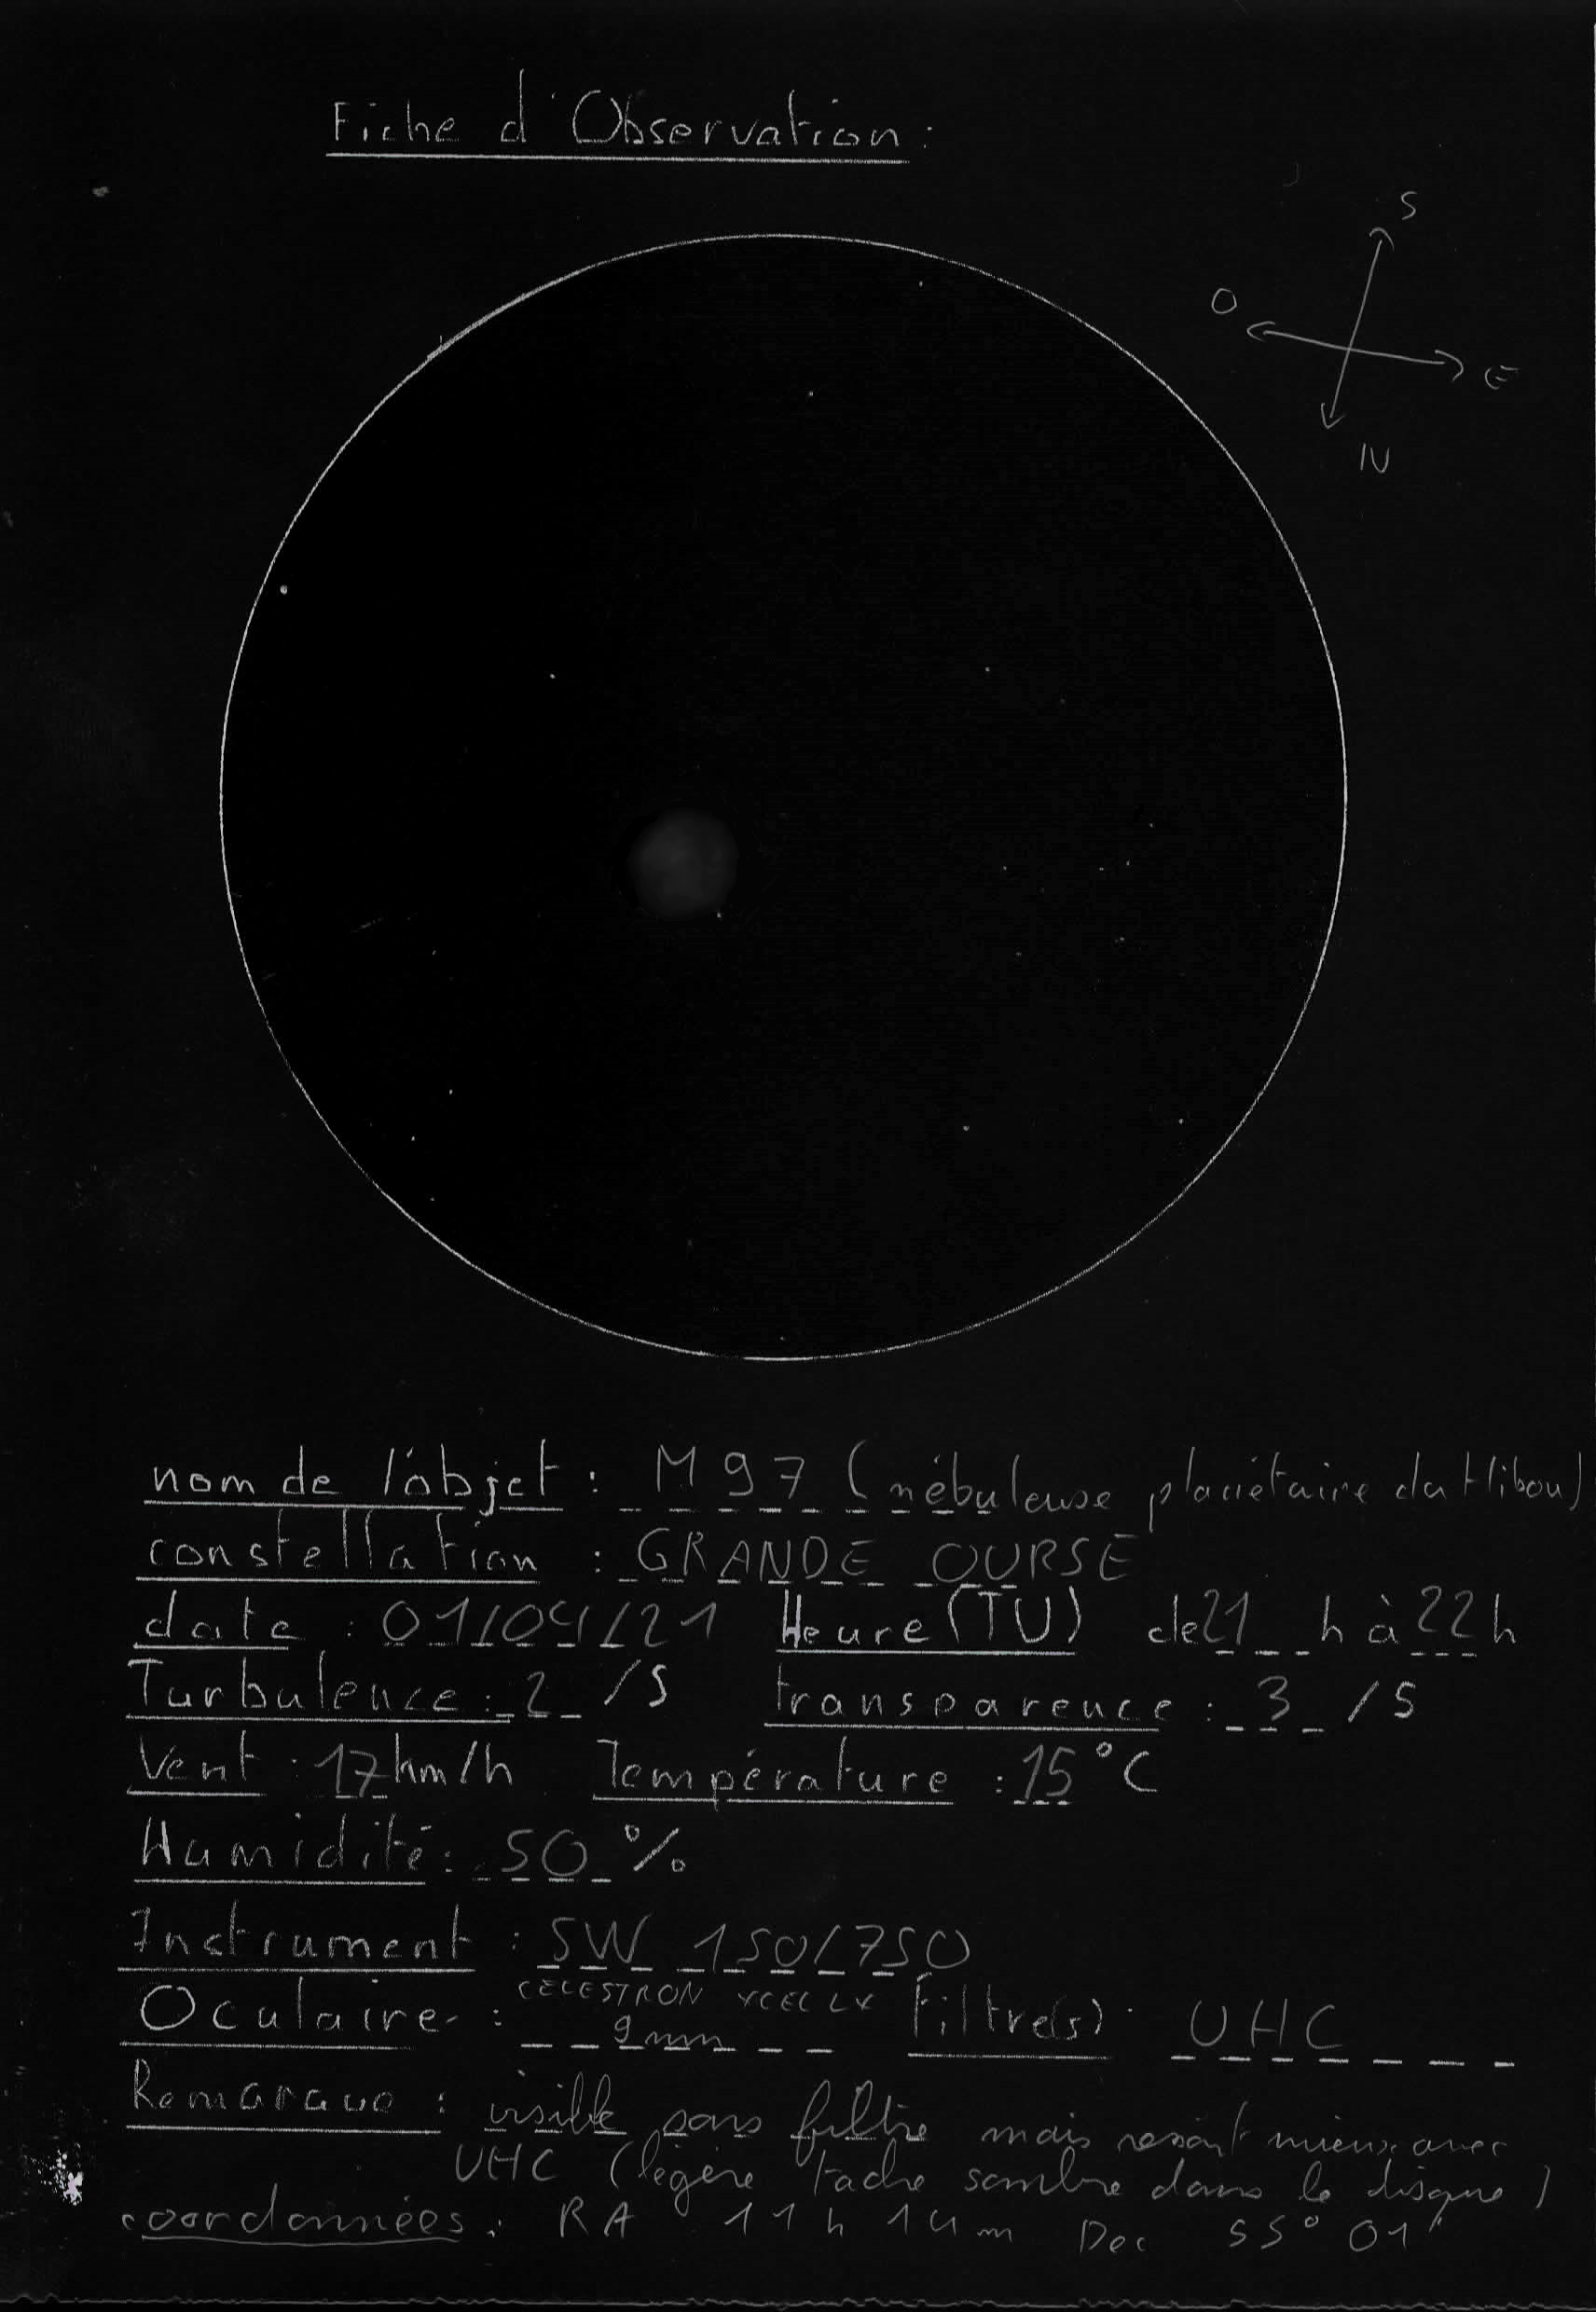 Fiche d'Observation :
S
O
E
N
nom de l'objet : M 97 (nébuleuse planétaire du Hibou)
constellation : GRANDE OURSE
date : 01/04/21 Heure (TU) de 21 h à 22 h
Turbulence : 2 /5 transparence : 3 /5
Vent : 17 km/h Température : 15 °C
Humidité : 50 %
Instrument : SW 150/750
Oculaire : CELESTRON XCEL LX 9mm Filtre(s) : UHC
Remarque : visible sans filtre mais ressort mieux avec
UHC (légère tache sombre dans le disque)
coordonnées : RA 11h 14m Dec 55° 01"